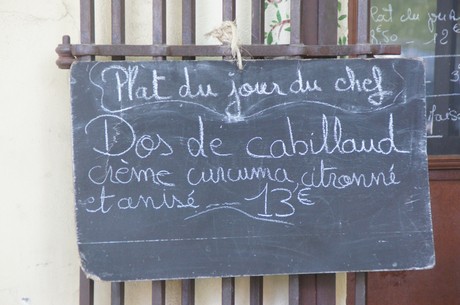 Plat du jour du chef
Dos de cabillaud
crème curcuma, citronné
et anisé --- 13€
Plat du jour
12€